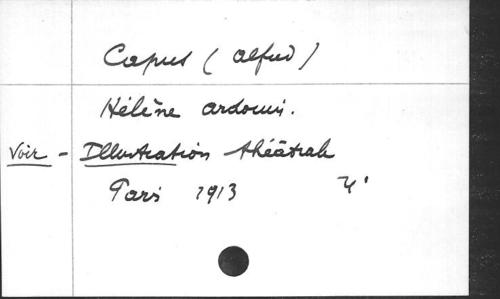 Capus (Alfred)
Hélène Ardouin.
Voir - Illustration théâtrale
Paris 1913 4°